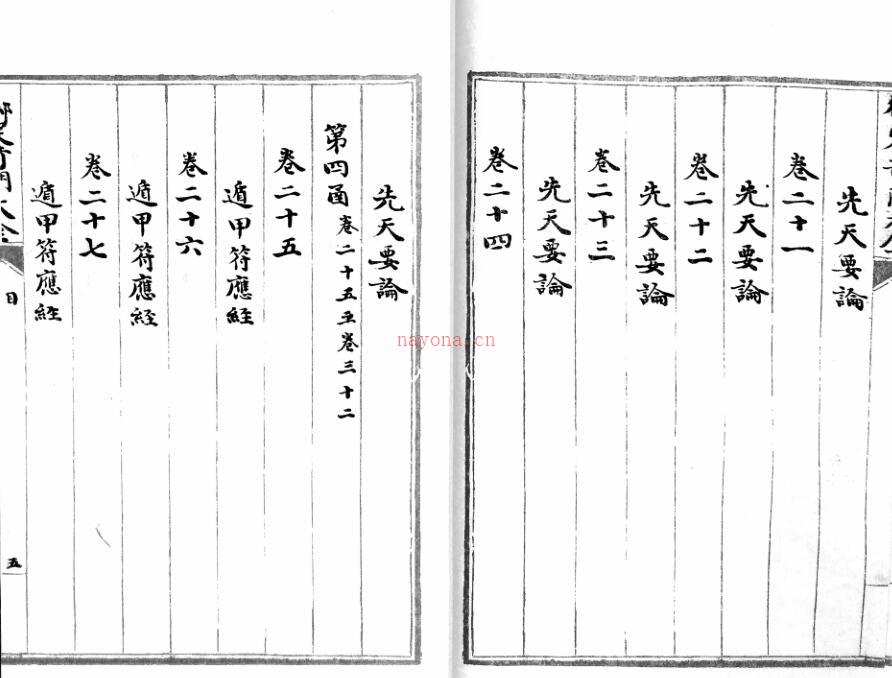 先天要論
卷二十一
先天要論
卷二十二
先天要論
卷二十三
先天要論
卷二十四
先天要論
第四函 卷二十五至卷三十二
卷二十五
遁甲符應經
卷二十六
遁甲符應經
卷二十七
遁甲符應経
奇門大全
目
五
nayona.cn